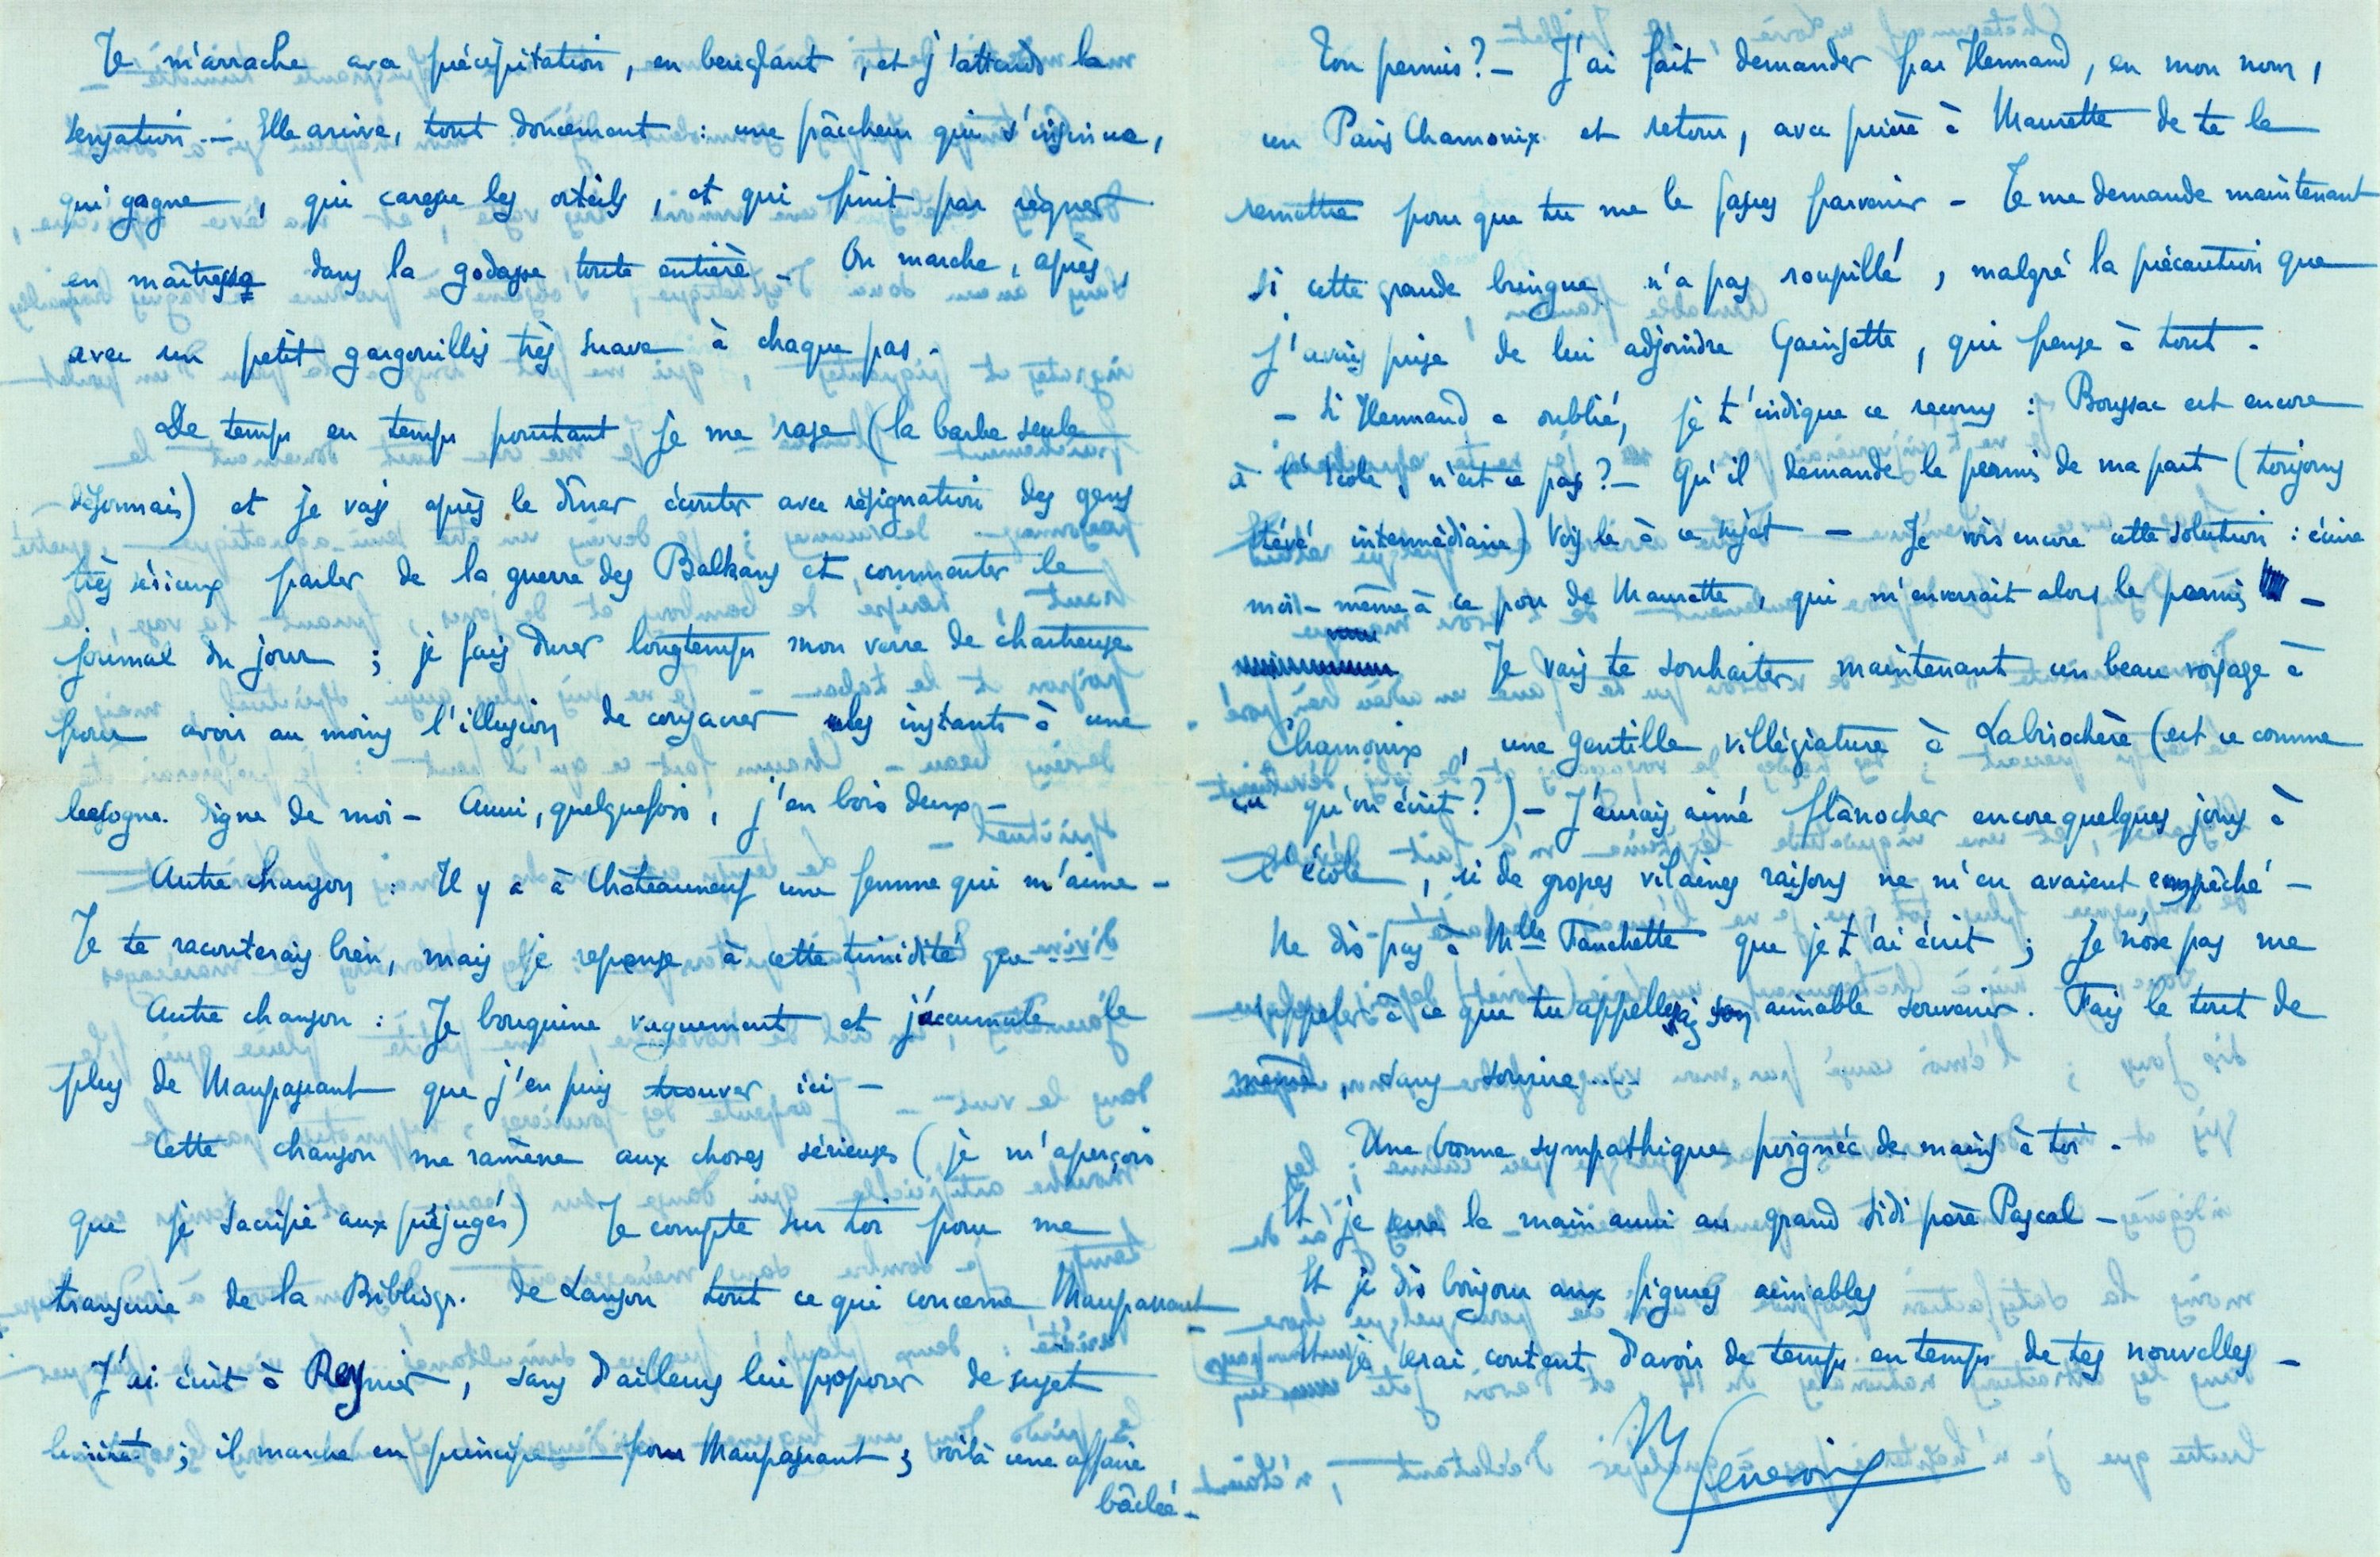 Je m'arrache avec précipitation, en beuglant, et j'attends la
sensation — Elle arrive, tout doucement : une fraîcheur qui s'insinue,
qui gagne, qui caresse les orteils, et qui finit par régner
en maîtresse dans la godasse toute entière — On marche, après,
avec un petit gargouillis très suave à chaque pas —
De temps en temps pourtant je me rase (la barbe seule
désormais) et je vais après le dîner écouter avec résignation des gens
très sérieux parler de la guerre des Balkans et commenter le
journal du jour ; je fais durer longtemps mon verre de chartreuse
pour avoir au moins l'illusion de consacrer des instants à une
besogne digne de moi — Aussi, quelquefois, j'en bois deux —
Autre chanson : Il y a à Châteauneuf une femme qui m'aime —
Je te raconterais bien, mais je repense à cette timidité que —
Autre chanson : Je bouquine vaguement et j'accumule le
plus de Maupassant que j'en puis trouver ici —
Cette chanson me ramène aux choses sérieuses (je m'aperçois
que je sacrifie aux préjugés) Je compte sur toi pour me
transcrire de la Bibliogr. de Lanson tout ce qui concerne Maupassant —
J'ai écrit à Reynier, sans d'ailleurs lui proposer de sujet
limité ; il marche en principe pour Maupassant ; voilà une affaire
bâclée —
Ton permis ? — J'ai fait demander par Hennand, en mon nom,
un Paris Chamonix et retour, avec prière à Maurette de te le
remettre pour que tu me le fasses parvenir — Je me demande maintenant
si cette grande bringue n'a pas roupillé, malgré la précaution que
j'avais prise de lui adjoindre Gainsette, qui pense à tout —
— Si Hennand a oublié, je t'indique ce recours : Boussac est encore
à l'école, n'est ce pas ? — Qu'il demande le permis de ma part (toujours
Hévé intermédiaire) Vois le à ce sujet — Je vois encore cette solution : écrire
moi-même à ce pou de Maurette, qui m'enverrait alors le permis —
Je vais te souhaiter maintenant un beau voyage à
Chamonix, une gentille villégiature à Labriochère (est ce comme
ça qu'on écrit ?) — J'aurais aimé flânocher encore quelques jours à
l'école, si de grosses vilaines raisons ne m'en avaient empêché —
Ne dis pas à Mlle Fanchette que je t'ai écrit ; je n'ose pas me
rappeler à ce que tu appellerais son aimable souvenir. Fais le tout de
même, sans sourire ....
Une bonne sympathique poignée de mains à toi —
Et je serre la main aussi au grand sidi père Pascal —
Et je dis bonjour aux figures aimables
Et je serai content d'avoir de temps en temps de tes nouvelles —
M Genevoix